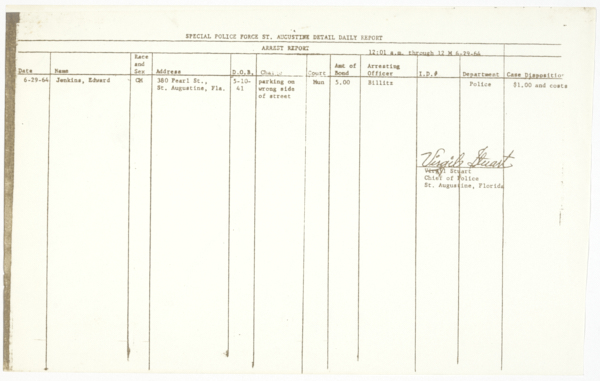 SPECIAL POLICE FORCE ST. AUGUSTINE DETAIL DAILY REPORT
ARREST REPORT
12:01 a.m. through 12 M 6-29-64
Date Name Race and Sex Address D.O.B. Court Amt of Bond Arresting Officer I.D.# Department Case Disposition
6-29-64 Jenkins, Edward CM 380 Pearl St., 5-10- parking on Mun 5.00 Billits Police $1.00 and costs
St. Augustine, Fla. 41 wrong side
of street
Virgil Stuart
Virgil Stuart
Chief of Police
St. Augustine, Florida